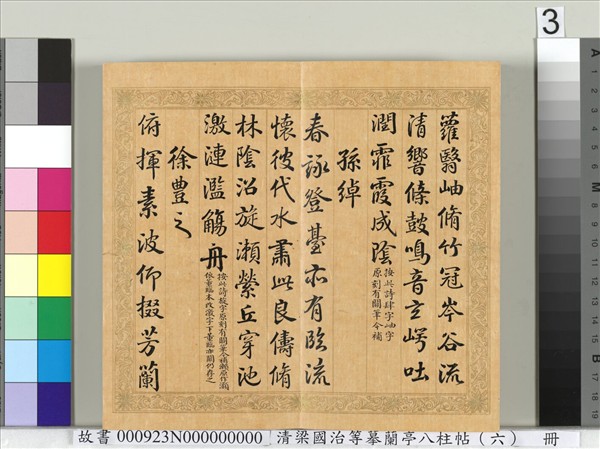 蘿翳岫脩竹冠岑谷流
清響條鼓鳴音玄崿吐
潤霏霞成陰
按此詩肆字岫字
原刻有闕筆今補
孫綽
春詠登臺亦有臨流
懷彼代水肅此良儔脩
林陰沼旋瀨縈丘穿池
激漣濫觴舟
按此詩旋字原刻有闕筆今補瀨原作
依董臨本改激字下董臨亦闕仍存之
徐豐之
俯揮素波仰掇芳蘭
3
故書 000923N000000000 清梁國治等摹蘭亭八柱帖（六） 冊